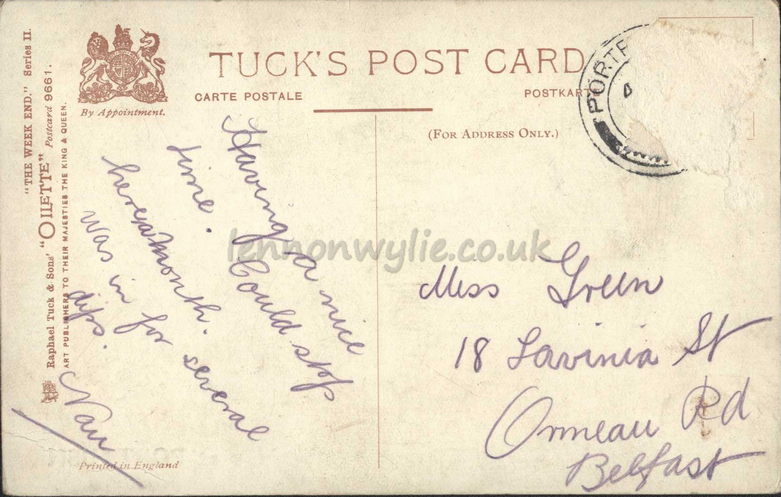 "THE WEEK END." Series II.
Raphael Tuck & Sons' "OILETTE" Postcard 9661.
ART PUBLISHERS TO THEIR MAJESTIES THE KING & QUEEN.
By Appointment.
TUCK'S POST CARD
CARTE POSTALE
POSTKART
(FOR ADDRESS ONLY.)
PORTR
Having a nice
time. Could stop
here a month.
Was in for several
dips.
Nan
Miss Green
18 Lavinia St
Ormeau Rd
Belfast
Printed in England
lennonwylie.co.uk